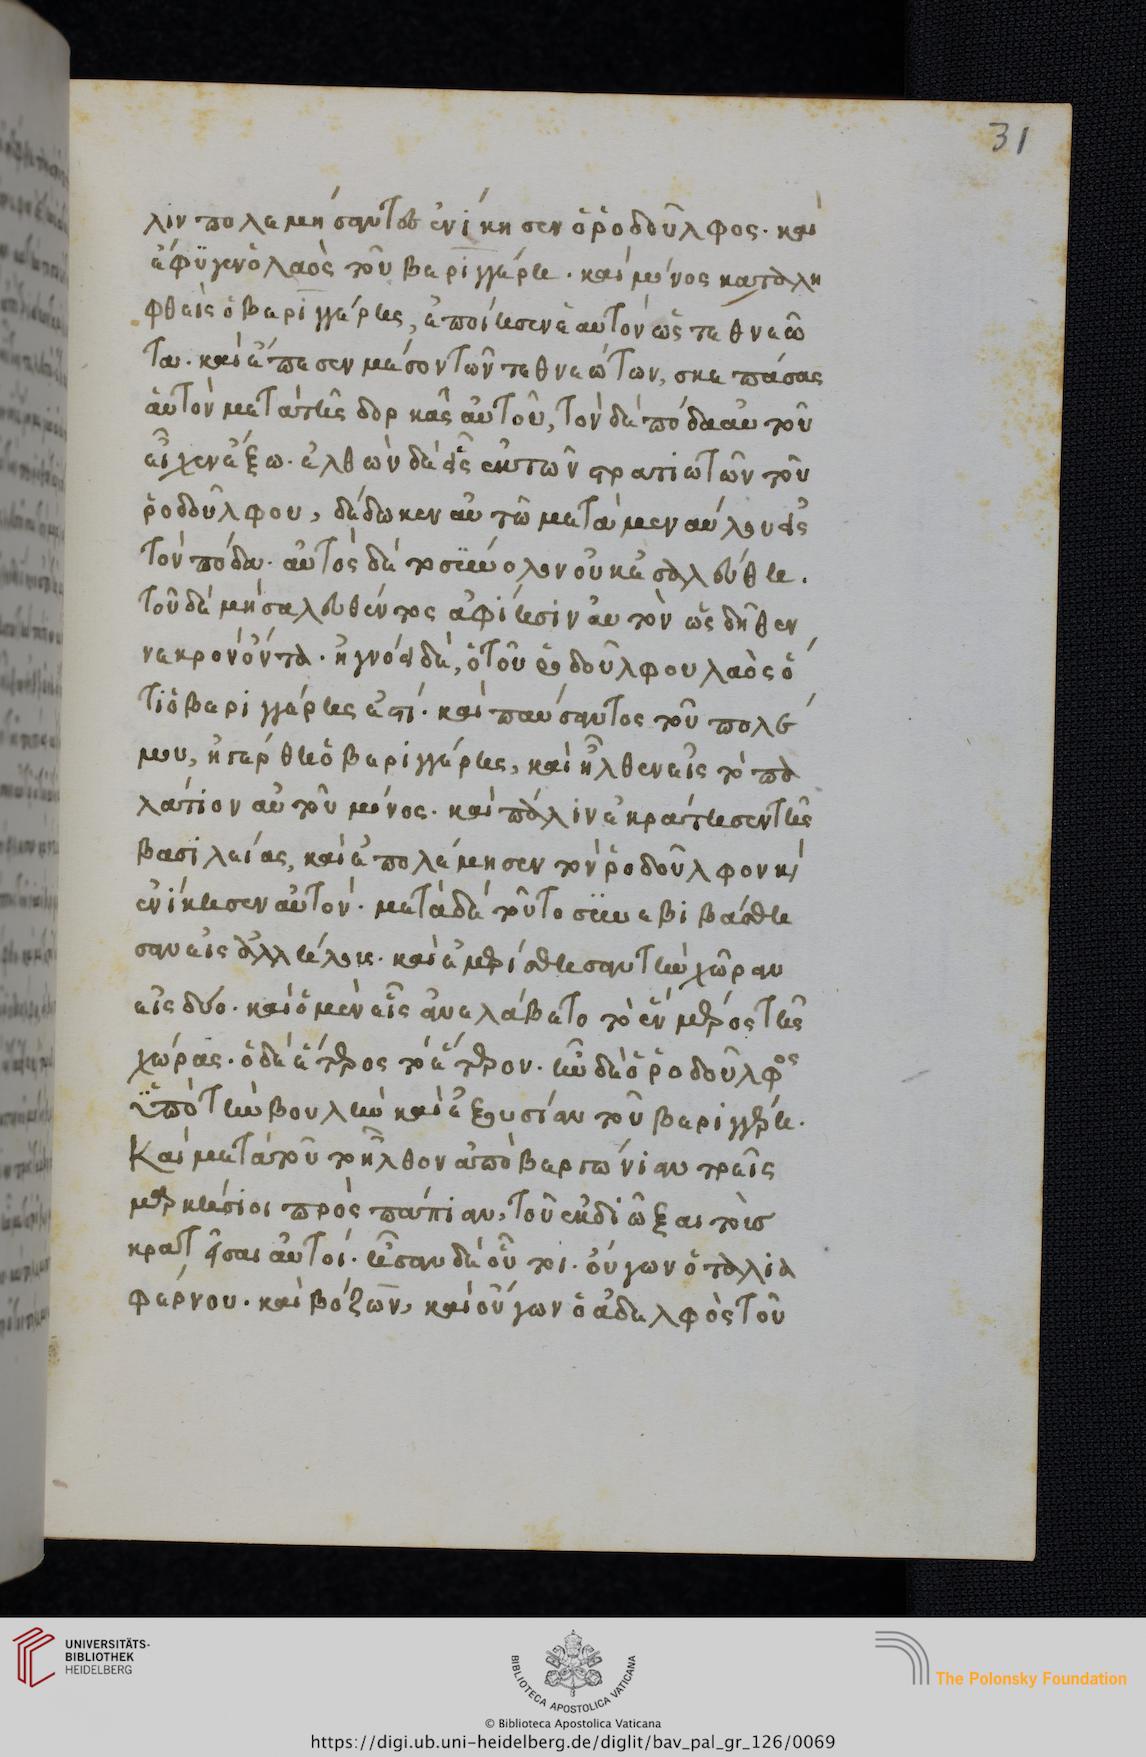 31
λιν πολεμήσαντος ἐνίκησεν ὁ ῥοδδοῦλφος. καὶ
ἔφϋγεν ὁ λαὸς τοῦ βεριγγέρη. καὶ μόνος καταλη
φθεὶς ὁ βεριγγέρης, ἐποίησεν ἑαυτὸν ὡς τεθνεῶ
τα. καὶ ἔπεσεν μέσον τῶν τεθνεώτων, σκεπάσας
ἑυτὸν μετὰ τῆς δόρκας αὐτοῦ, τὸν δὲ πόδα αὐτοῦ
εἶχεν ἔξω. ἐλθὼν δὲ εἷς ἐκ τῶν στρατιωτῶν τοῦ
ῥοδδοῦλφου, δέδωκεν αὐτῶ μετὰ μεναύλου εἰς
τὸν πόδα. αὐτὸς δὲ τοσϋνόλον οὐκ ἐσαλεύθη.
τοῦ δὲ μὴ σαλευθέντος ἀφίησιν αὐτὸν ὡς δῆθεν
νεκρὸν ὄντα. ἠγνόει δὲ, ὁ τοῦ ῥοδοῦλφου λαὸς ὅ
τι ὁ βεριγγέρης ἐστί. καὶ παύσαντος τοῦ πολέ
μου, ἠγέρθη ὁ βεριγγέρης, καὶ ἦλθεν εἰς τὸ πα
λάτιον αὐτοῦ μόνος. καὶ πάλιν ἐκράτησεν τῆς
βασιλείας, καὶ ἐπολέμησεν τὸν ῥοδοῦλφον κὶ
ἐνίκησεν αὐτόν. μετὰ δὲ τοῦτο σϋνεβιβάσθη
σαν εἰς ἀλλήλοις. καὶ ἐμερίσθησαν τὴν χῶραν
εἰς δύο. καὶ ὁ μὲν εἷς ἀνελάβετο τὸ ἓν μέρος τῆς
χώρας. ὁ δὲ ἕτερος τὸ ἕτερον. ἦν δὲ ὁ ῥοδοῦλφος
ὑπὸ τὴν βουλὴν καὶ ἐξουσίαν τοῦ βεριγγέρη.
Καὶ μετὰ τοῦτο ἦλθον ἀπὸ βεργωνίαν τρεῖς
μερκήσιοι πρὸς πάπιαν, τοῦ ἐκδιῶξαι τοὶσ
κρατῆσαι αὐτοί. ἦσαν δὲ οὗτοι. οὔγων ὁ ταλια
φέρνου. καὶ βόζων, καὶ οὔγων ὁ ἀδελφὸς τοῦ
UNIVERSITÄTS-
BIBLIOTHEK
HEIDELBERG
BIBLIOTECA APOSTOLICA VATICANA
The Polonsky Foundation
© Biblioteca Apostolica Vaticana
https://digi.ub.uni-heidelberg.de/diglit/bav_pal_gr_126/0069